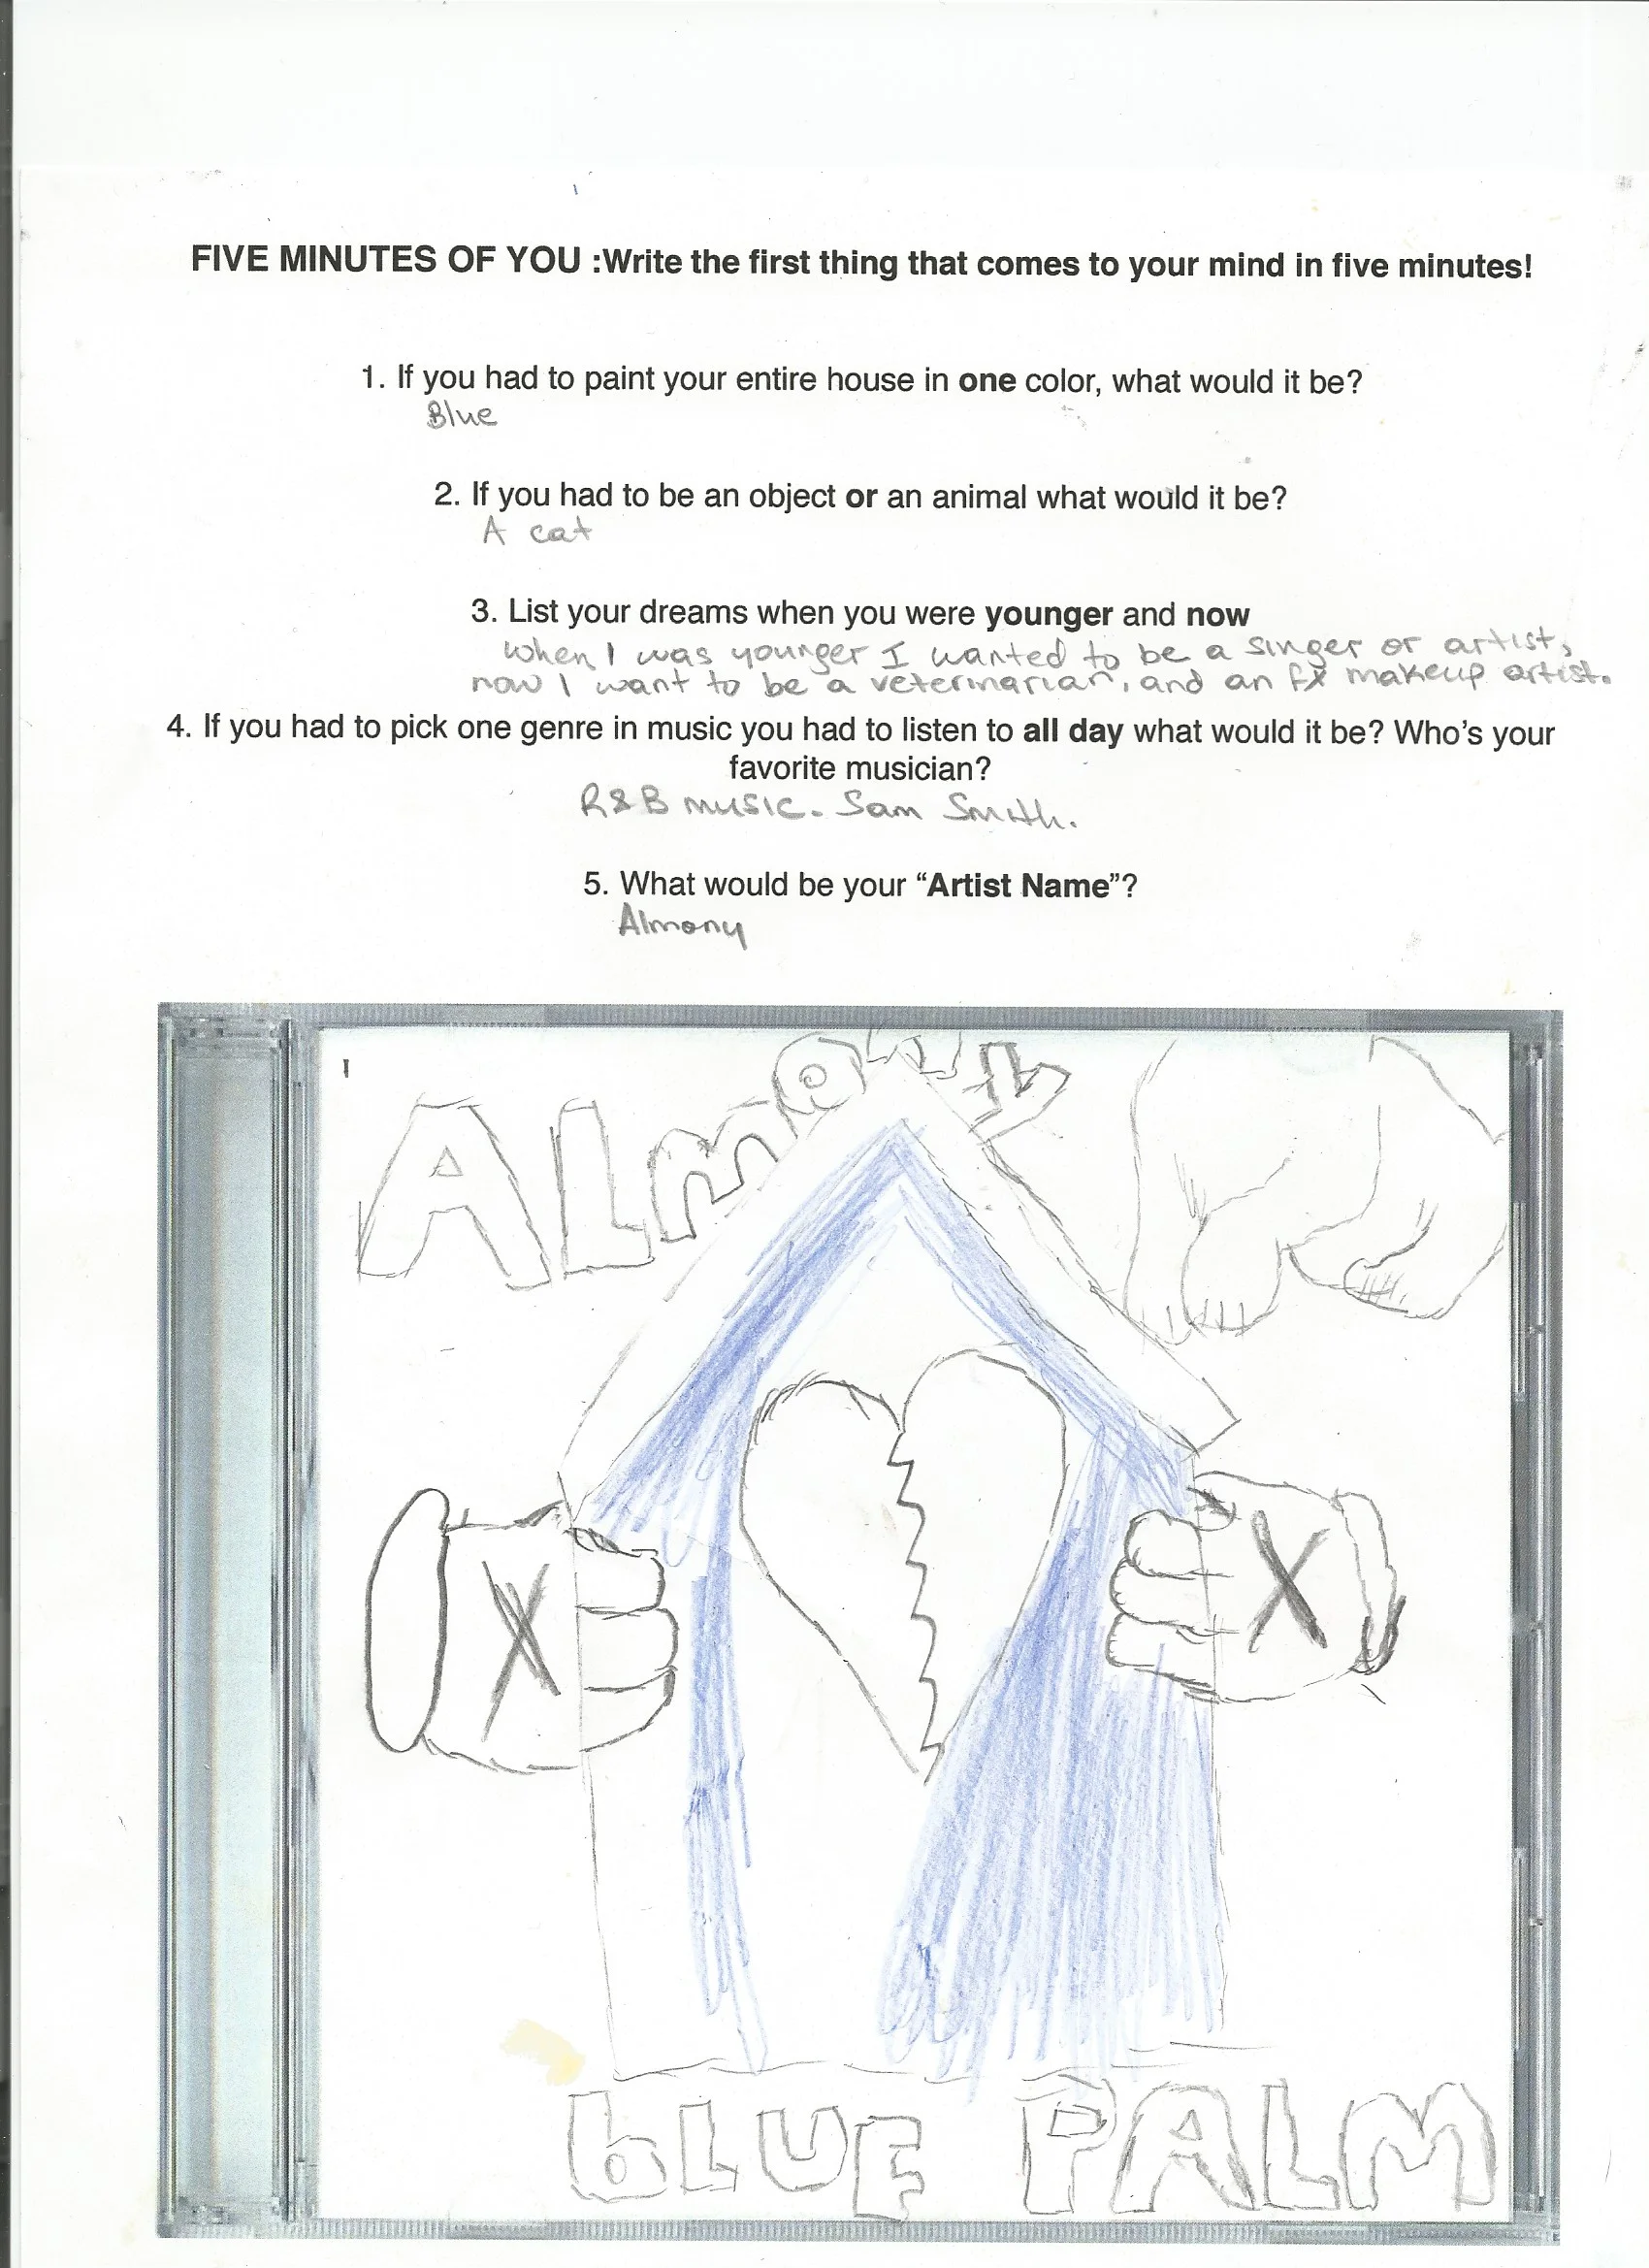 FIVE MINUTES OF YOU :Write the first thing that comes to your mind in five minutes!
1. If you had to paint your entire house in one color, what would it be?
Blue
2. If you had to be an object or an animal what would it be?
A cat
3. List your dreams when you were younger and now
when I was younger I wanted to be a singer or artist,
now I want to be a veterinarian, and an fx makeup artist.
4. If you had to pick one genre in music you had to listen to all day what would it be? Who's your
favorite musician?
R&B music. Sam Smith.
5. What would be your “Artist Name”?
Almony
ALmony
X X
bLUE PALM